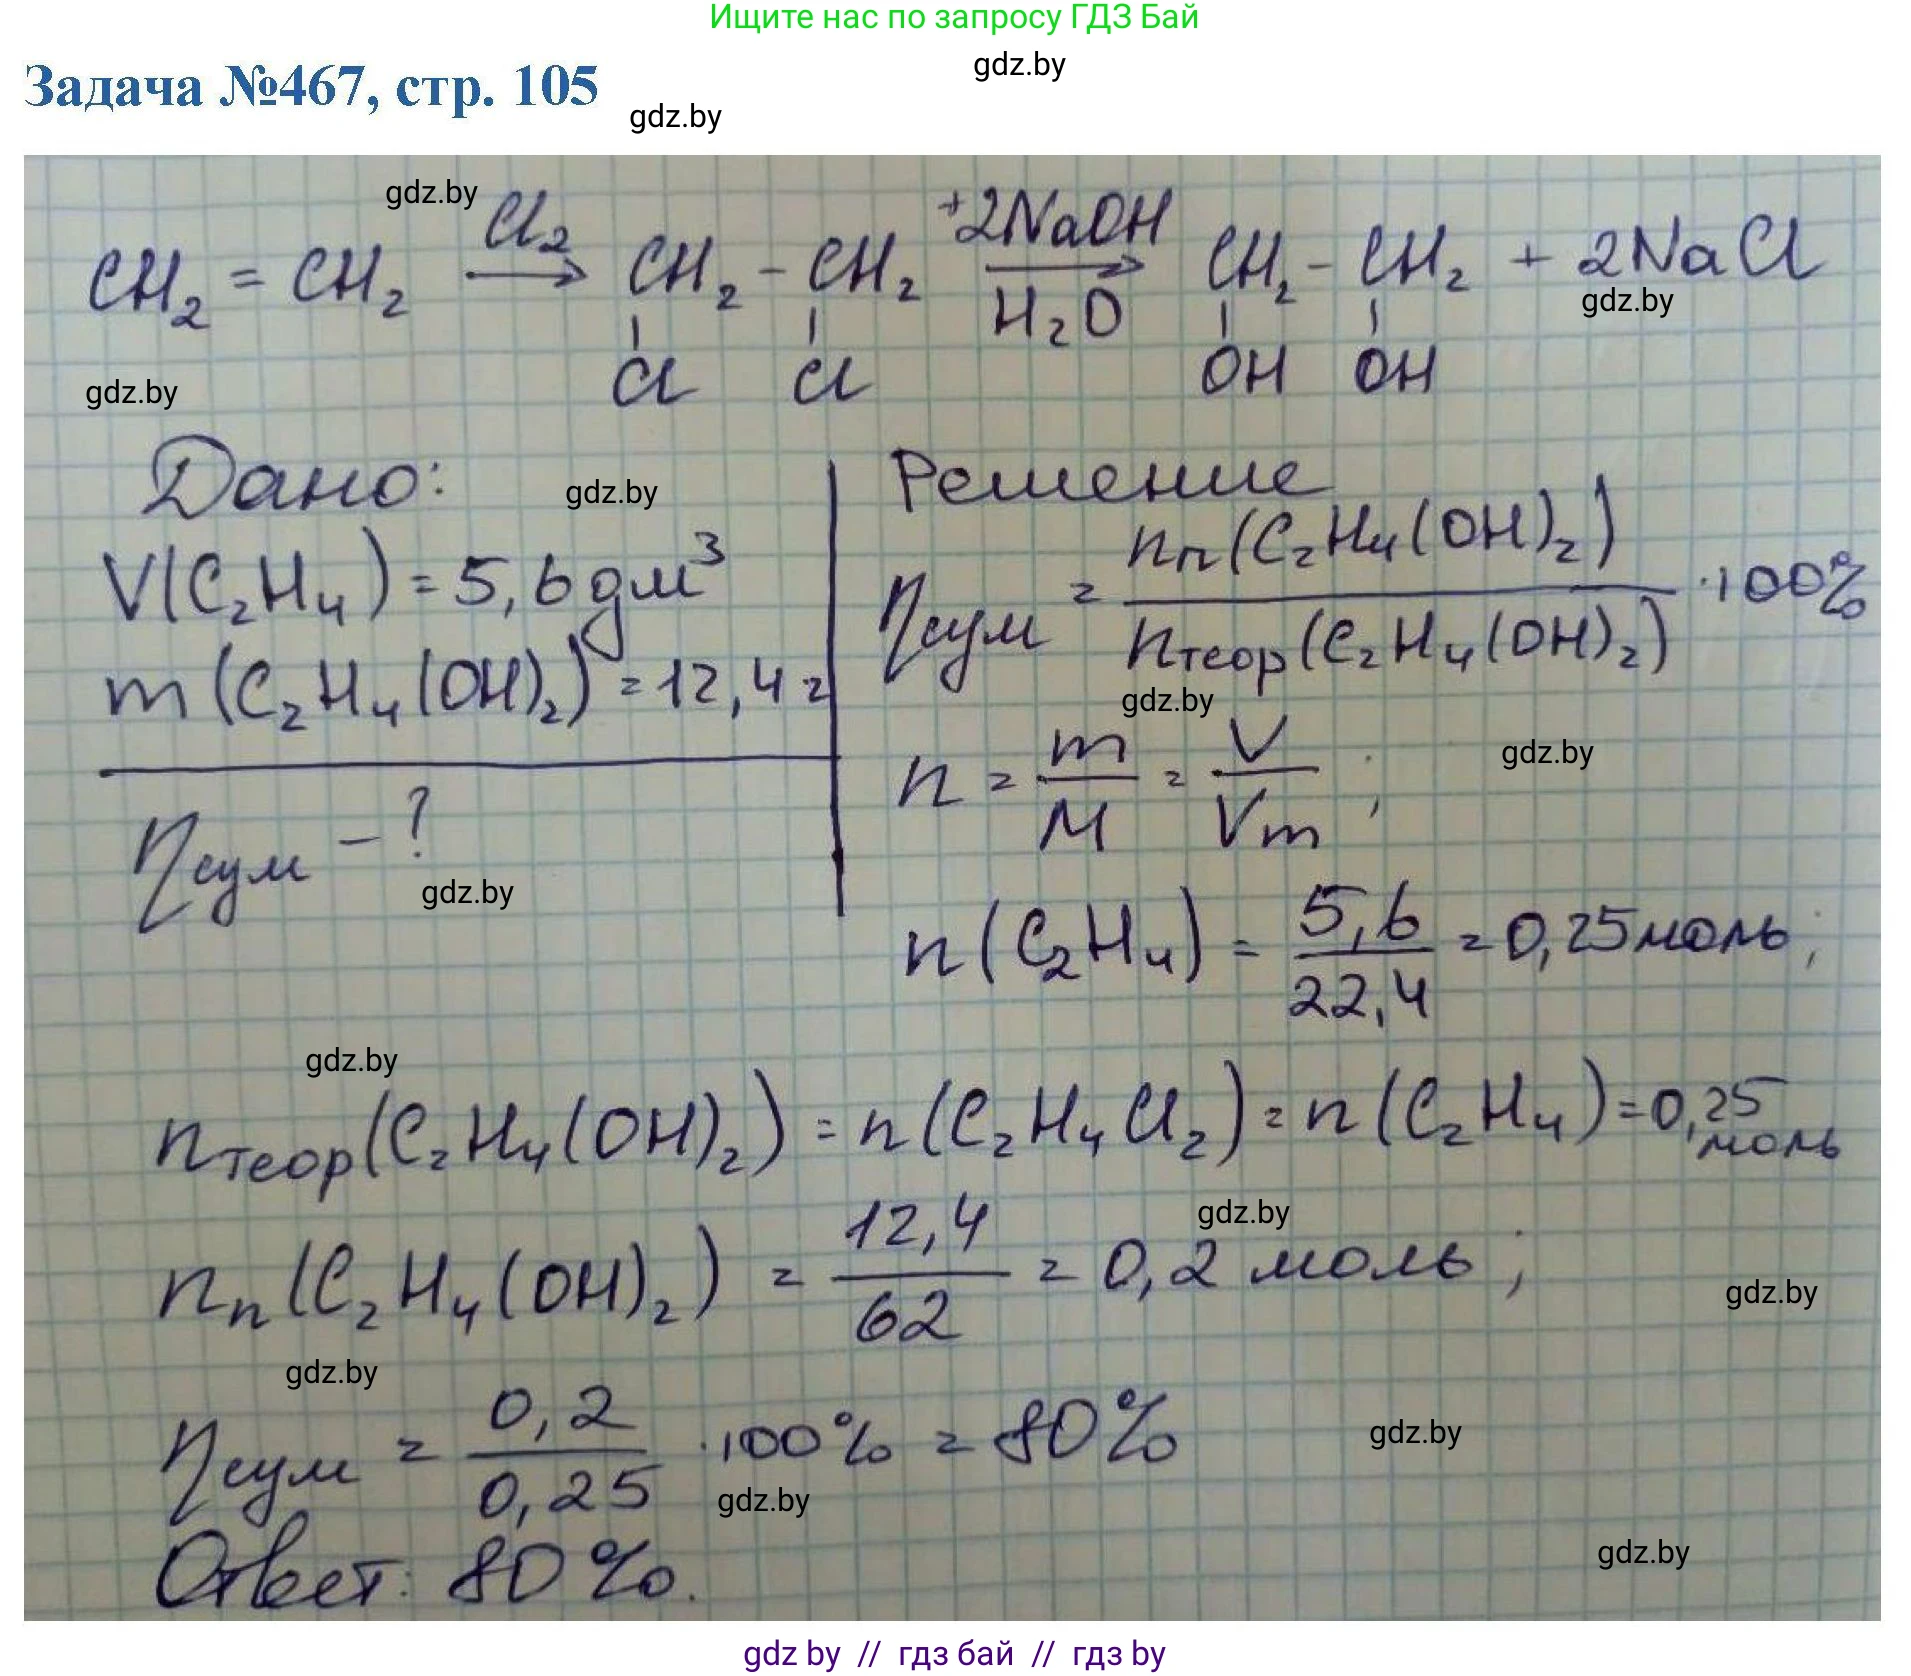 Ищите нас по запросу ГДЗ Бай
gdz.by
Задача №467, стр. 105
gdz.by
gdz.by
CH₂ = CH₂ —Cl₂→ CH₂ - CH₂ —+2NaOH / H₂O→ CH₂ - CH₂ + 2NaCl
gdz.by
Cl Cl OH OH
gdz.by
Дано:
gdz.by
V(C₂H₄) = 5,6 дм³
m(C₂H₄(OH)₂) = 12,4 г
ηсум - ?
gdz.by
Решение
ηсум = nп(C₂H₄(OH)₂) / nтеор(C₂H₄(OH)₂) · 100%
gdz.by
n = m / M = V / Vm ;
gdz.by
n(C₂H₄) = 5,6 / 22,4 = 0,25 моль;
gdz.by
nтеор(C₂H₄(OH)₂) = n(C₂H₄Cl₂) = n(C₂H₄) = 0,25 моль
gdz.by
nп(C₂H₄(OH)₂) = 12,4 / 62 = 0,2 моль ;
gdz.by
gdz.by
ηсум = 0,2 / 0,25 · 100% = 80%
gdz.by
gdz.by
Ответ: 80%.
gdz.by
gdz by // гдз бай // гдз by